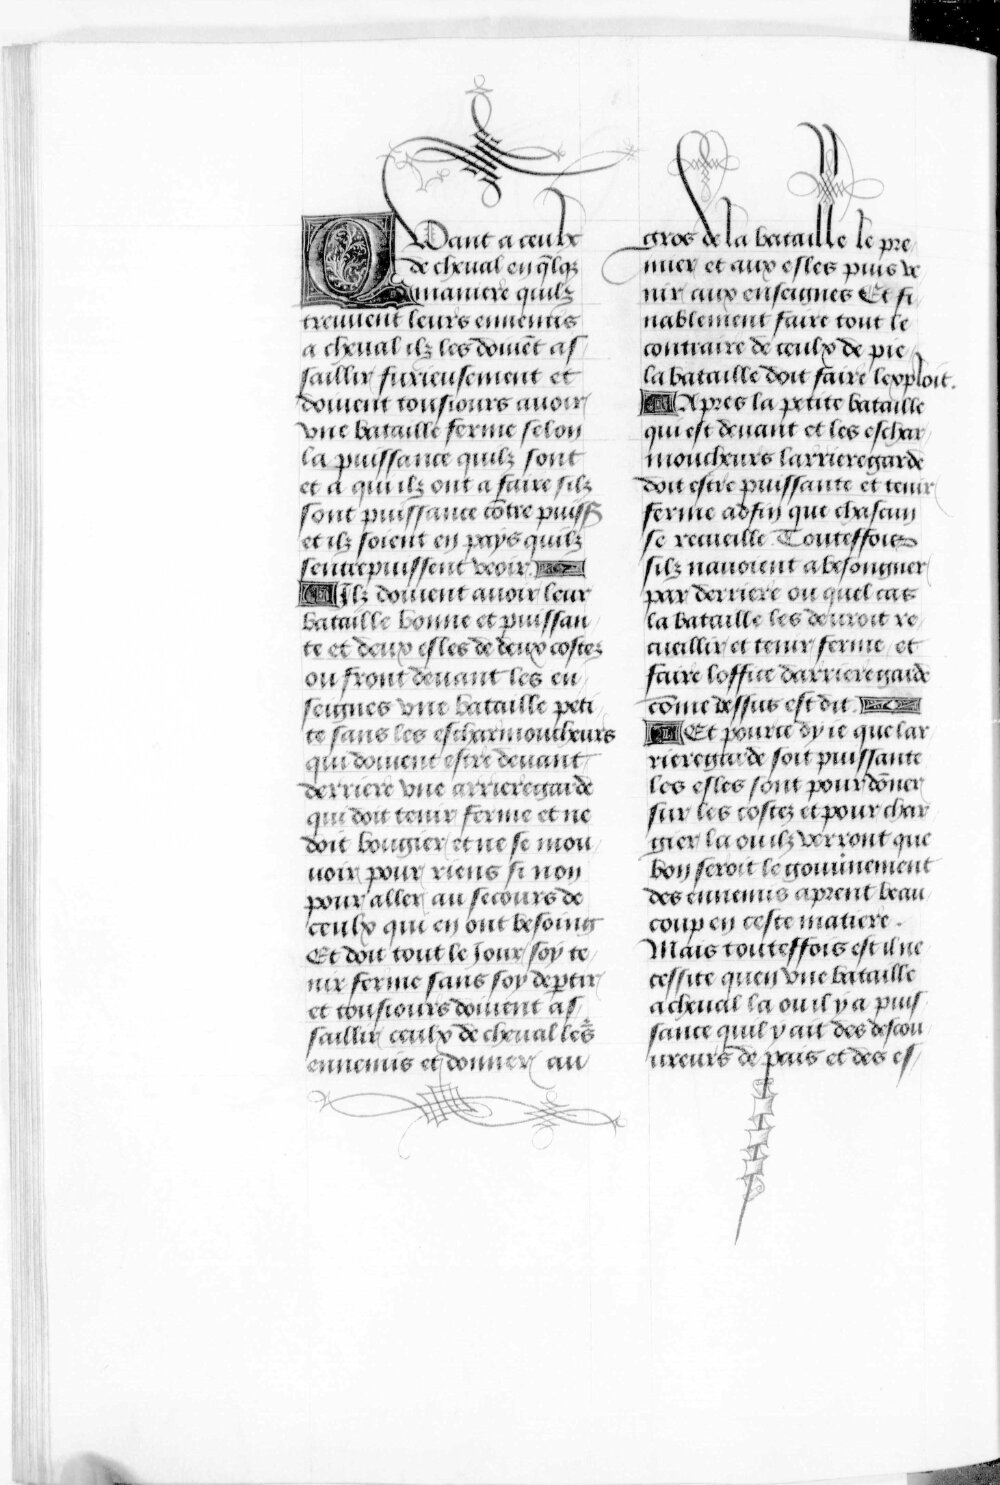 QVant a ceulx
de cheval en q̃lq̃
maniere quilz
treuuent leurs ennemis
a cheval ilz les doiuẽt as
saillir furieusement et
doiuent tousiours auoir
vne bataille ferme selon
la puissance quilz sont
et a qui ilz ont a faire silz
sont puissance cõtre puiss̃
et ilz soient en pays quilz
sentrepuissent veoir.
Ilz doiuent auoir leur
bataille bonne et puissan
te et deux esles de deux costez
ou front deuant les en
seignes vne bataille peti
te sans les escharmoucheurs
qui doiuent estre deuant
derriere vne arrieregarde
qui doit tenir ferme et ne
doit bougier et ne se mou
uoir pour riens si non
pour aller au secours de
ceulx qui en ont besoing
Et doit tout le Jour soy te
nir ferme sans soy deptir
et tousiours doiuent as
saillir ceulx de cheval les
ennemis et donner au
gros de la bataille le pre
mier et aux esles puis ve
nir aux enseignes Et fi
nablement faire tout le
contraire de ceulx de pie
la bataille doit faire lexploit.
Apres la petite bataille
qui est deuant et les eschar
moucheurs larrieregarde
doit estre puissante et tenir
ferme adfin que chascun
se recueille. Touteffois
silz nauoient a besongner
par derriere ou quel cas
la bataille les deuroit re
cueillir et tenir ferme et
faire loffice darrieregarde
cõme dessus est dit.
Et pource dy ie que lar
rieregarde soit puissante
les esles sont pour dõner
sur les costez et pour char
gier la ou ilz verront que
bon seroit le gouũnement
des ennemis aprent beau
coup en ceste matiere.
Mais touteffois est il ne
cessite quen vne bataille
a cheval la ou il y a puis
sance quil y ait des descou
ureurs de pais et des es